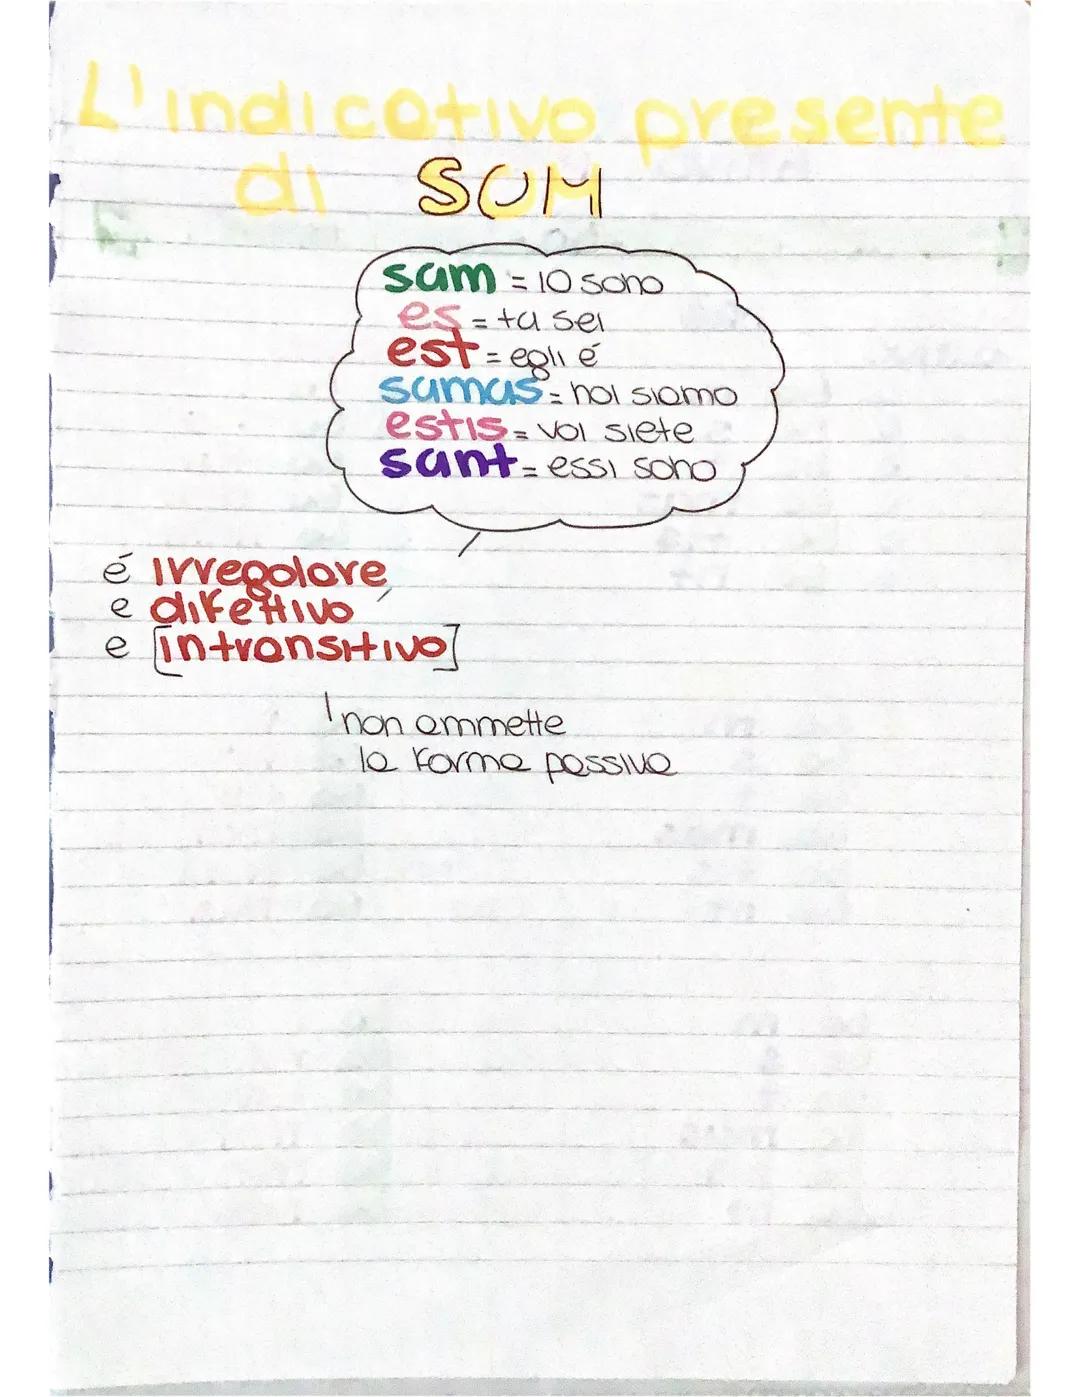 L'indicativo presente
di SUM
sum = io sono
es = tu sei
est = egli é
sumus = noi siamo
estis = voi siete
sunt = essi sono
é irregolare,
e difettivo
e [intransitivo]
non ammette
la forma passiva